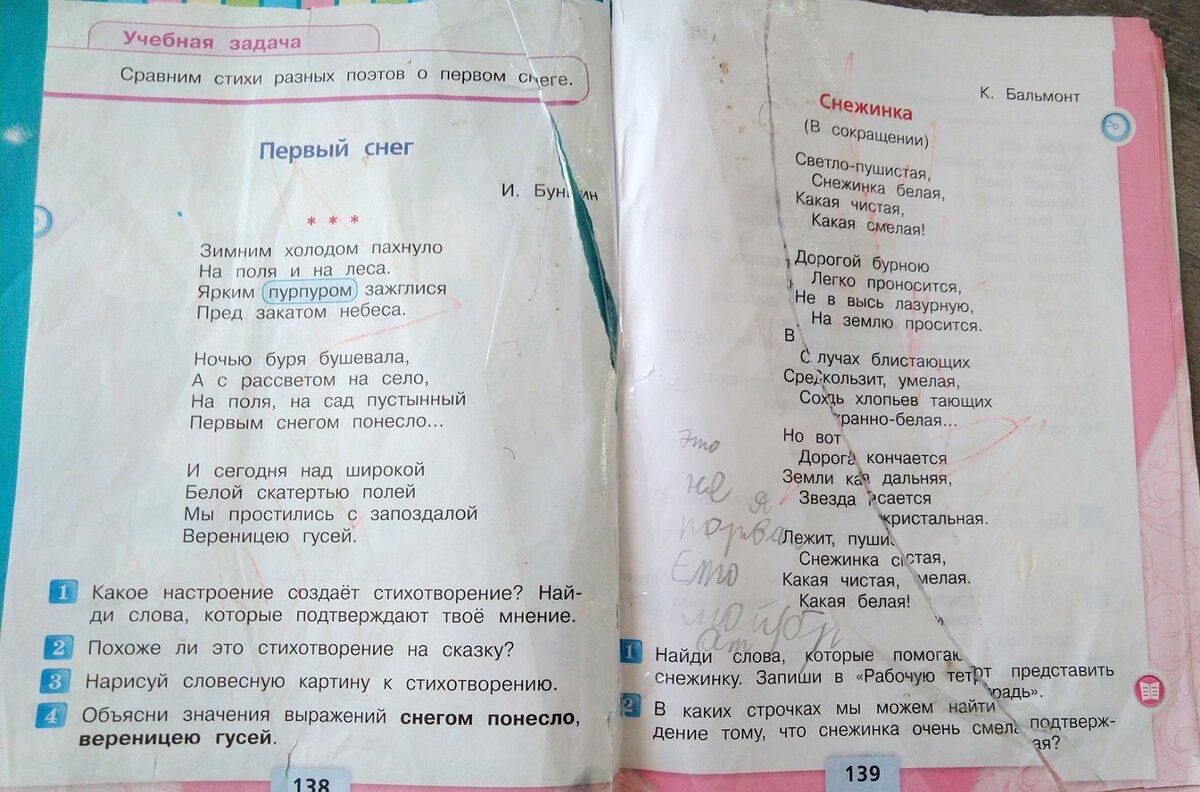 Учебная задача
Сравним стихи разных поэтов о первом снеге.
Первый снег
И. Бунин
* * *
Зимним холодом пахнуло
На поля и на леса.
Ярким пурпуром зажглися
Пред закатом небеса.
Ночью буря бушевала,
А с рассветом на село,
На поля, на сад пустынный
Первым снегом понесло...
И сегодня над широкой
Белой скатертью полей
Мы простились с запоздалой
Вереницею гусей.
1 Какое настроение создаёт стихотворение? Най-
ди слова, которые подтверждают твоё мнение.
2 Похоже ли это стихотворение на сказку?
3 Нарисуй словесную картину к стихотворению.
4 Объясни значения выражений снегом понесло,
вереницею гусей.
138
К. Бальмонт
Снежинка
(В сокращении)
Светло-пушистая,
Снежинка белая,
Какая чистая,
Какая смелая!
Дорогой бурною
Легко проносится,
Не в высь лазурную,
На землю просится.
В
лучах блистающих
Скользит, умелая,
Средь хлопьев тающих
Сохранно-белая...
Но вот
Дорога кончается
Земли дальняя,
Звезда
кристальная.
Лежит, пушистая,
Снежинка смелая.
Какая чистая,
Какая белая!
Это
не я
порва
Ето
мой бр
ат
1 Найди слова, которые помогают представить
снежинку. Запиши в «Рабочую тетрадь».
2 В каких строчках мы можем найти подтверж-
дение тому, что снежинка очень смелая?
139